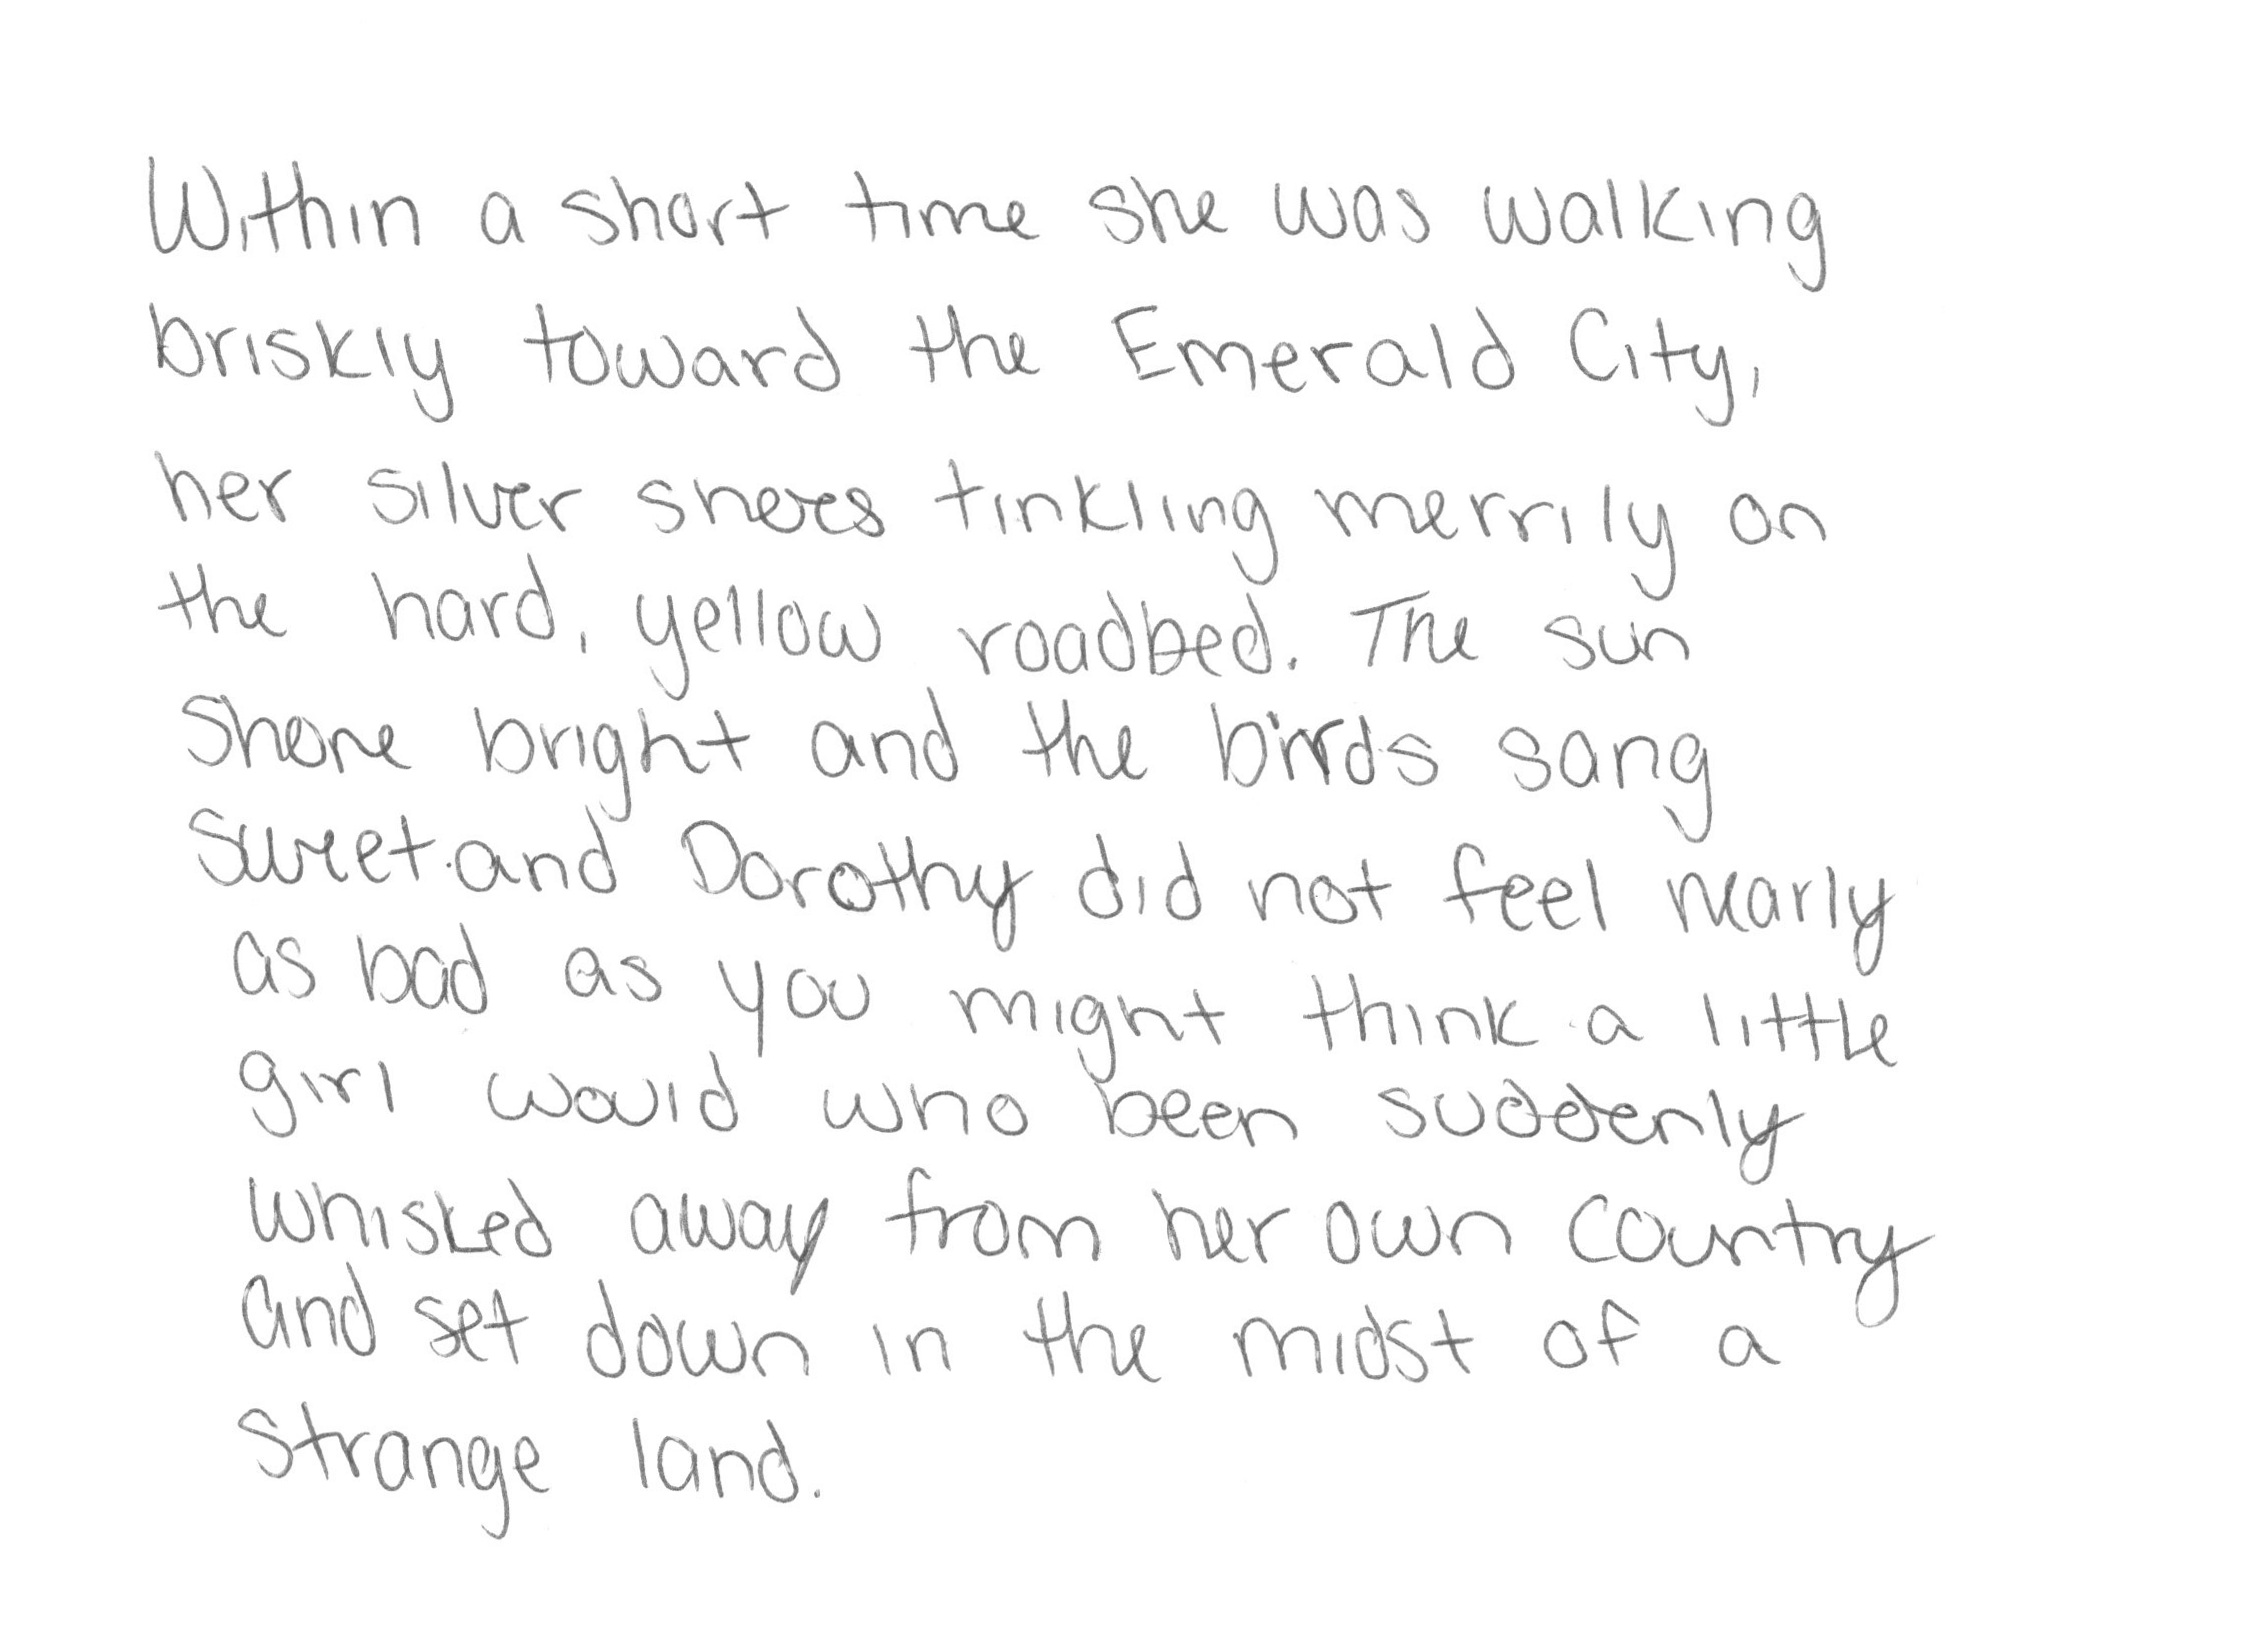 Within a short time she was walking
briskly toward the Emerald City,
her silver shoes tinkling merrily on
the hard, yellow roadbed. The sun
shone bright and the birds sang
sweet and Dorothy did not feel nearly
as bad as you might think a little
girl would who been suddenly
whisked away from her own country
and set down in the midst of a
strange land.